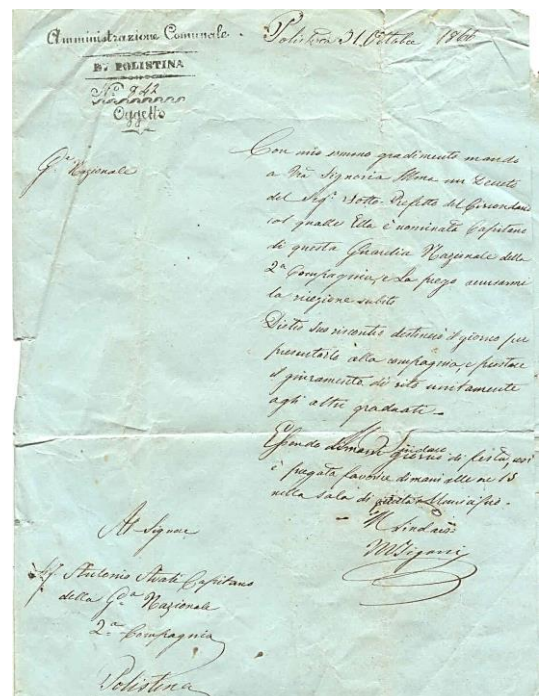 Amministrazione Comunale
DI POLISTINA
N.º 942
Oggetto
Gª Nazionale
Polistina 31 Ottobre 1866
Con mio sommo gradimento mando
a Vª Signoria Illma un Decreto
del Sigr Sotto-Prefetto del Circondario
col qualle Ella è nominata Capitano
di questa Guardia Nazionale della
2ª Compagnia, e La prego accusarme
la ricezione subito
Dietro suo riscontro destinerò il giorno per
presentarlo alla compagnia, e prestare
il giuramento di rito unitamente
agli altri graduati.
Essendo dimani giorno di festa, così
è pregata favorire dimani alle ore 15
nella sala di questo Municipio.
Il Sindaco
Al Signore
Antonio Avati Capitano
della Gª Nazionale
2ª Compagnia
Polistina